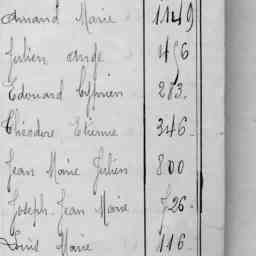 Amand Marie 1149
Julien Ange 456
Edouard Cyprien 283.
Théodore Etienne 346.
Jean Marie Julien 800
Joseph-Jean Marie 726.
Louis Marie 116.